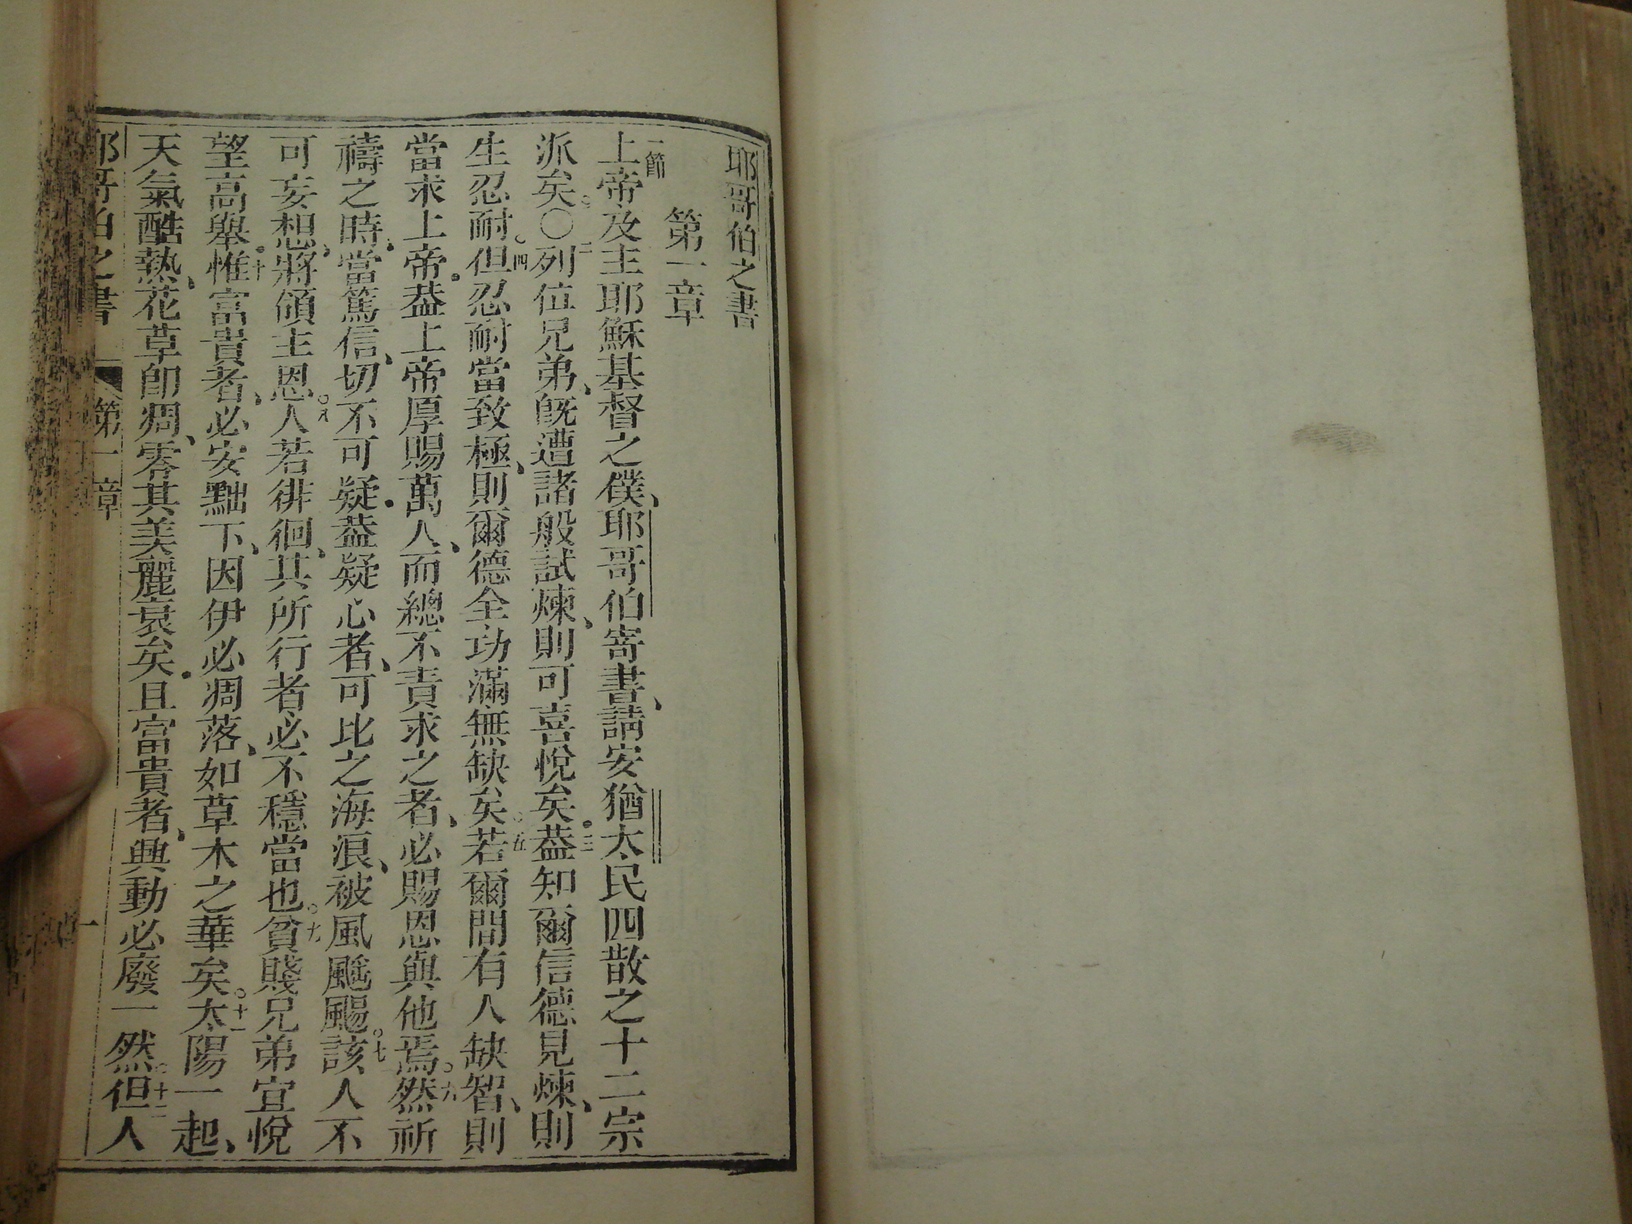 耶哥伯之書
第一章
一節
上帝及主耶穌基督之僕、耶哥伯寄書、請安猶太民四散之十二宗
派矣。○二列位兄弟、旣遭諸般試煉、則可喜悅矣。三葢知爾信德見煉、則
生忍耐。四但忍耐當致極、則爾德全功滿無缺矣。五若爾間有人缺智、則
當求上帝。葢上帝厚賜萬人、而總不責求之者、必賜恩與他焉。六然祈
禱之時、當篤信、切不可疑。葢疑心者、可比之海浪、被風颺。七該人不
可妄想、將領主恩。八人若徘徊、其所行者必不穩當也。九貧賤兄弟宜悅
望高舉。十惟富貴者、必安黜下、因伊必凋落、如草木之華矣。十一太陽一起、
天氣酷熱、花草卽凋、零其美麗衰矣。且富貴者、興動必廢一然。十二但人
耶哥伯之書 第一章 一